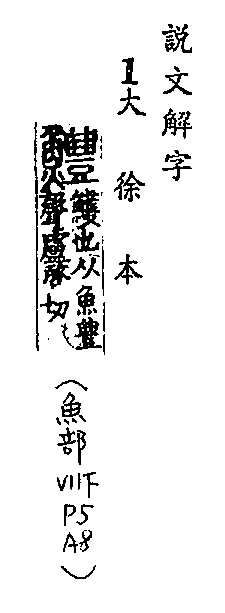 説文解字
1大徐本
鱧鱯也从魚豊
聲盧啓切
(魚部VII下P5A8)